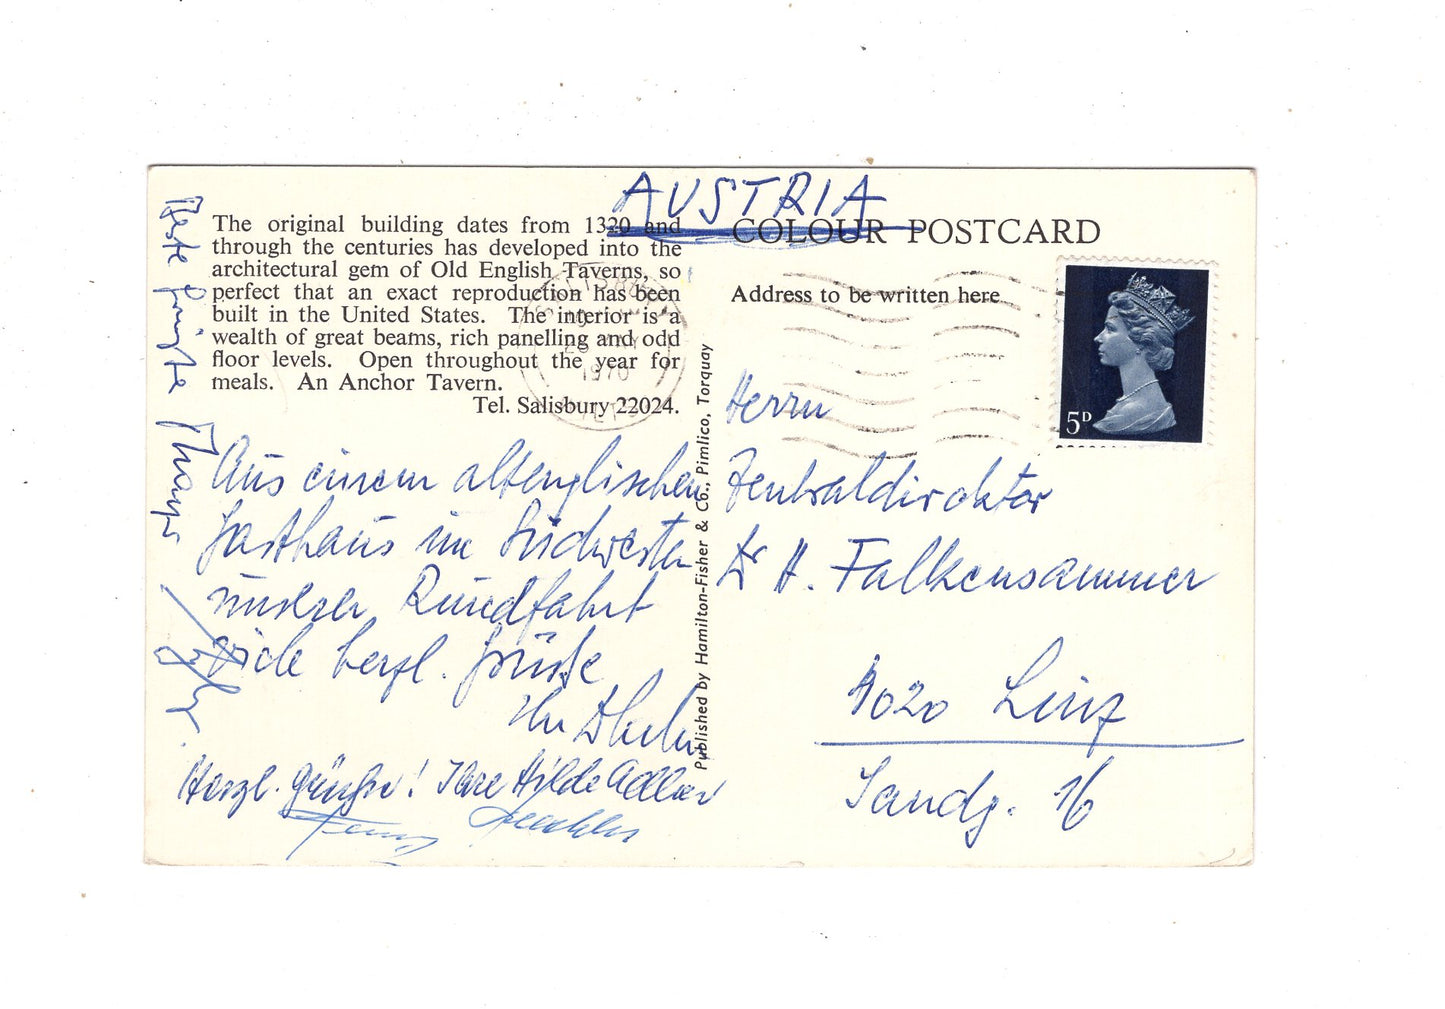 AUSTRIA
The original building dates from 1320 and
through the centuries has developed into the
architectural gem of Old English Taverns, so
perfect that an exact reproduction has been
built in the United States. The interior is a
wealth of great beams, rich panelling and odd
floor levels. Open throughout the year for
meals. An Anchor Tavern.
Tel. Salisbury 22024.
COLOUR POSTCARD
Address to be written here
5D
SALISBURY
1970
WILTS
Published by Hamilton-Fisher & Co., Pimlico, Torquay
Aus einem altenglischen
Gasthaus im Südwesten
unserer Rundfahrt
viele herzl. Grüße
Ihr
Herzl. Grüße! Ihre Hilde Adler
Beste Grüße
Herrn
Zentraldirektor
Dr H. Falkensammer
4020 Linz
Sandg. 16